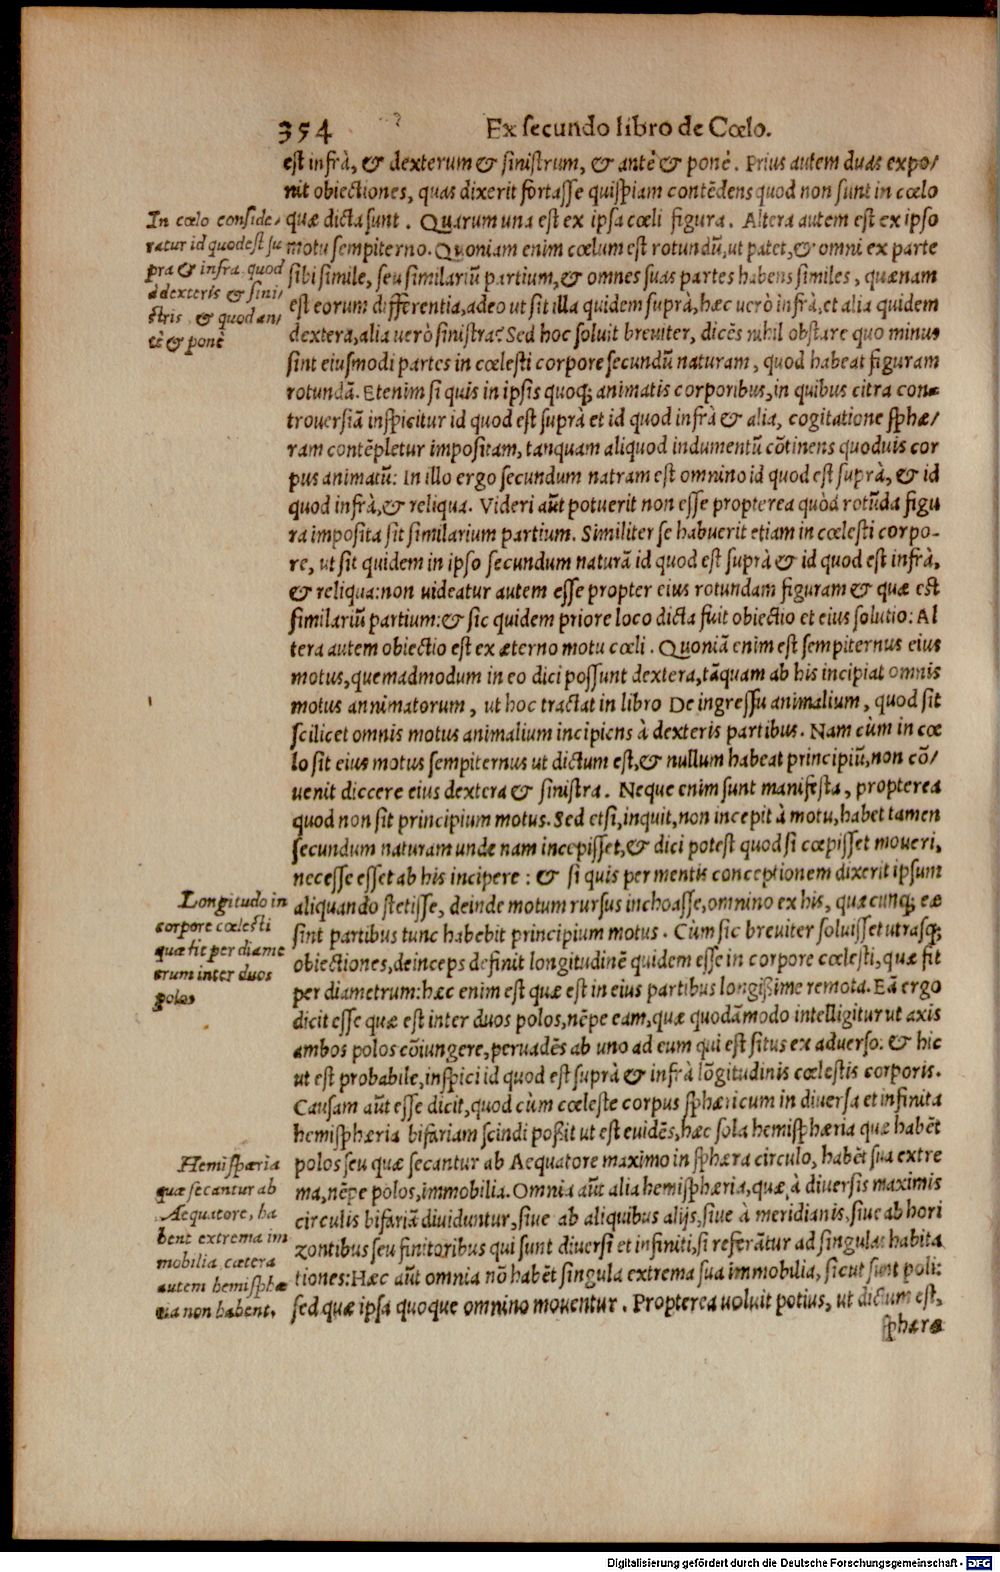 354 Ex secundo libro de Cœlo.
est infrà, & dexterum & sinistrum, & antè & ponè. Prius autem duas expo/
nit obiectiones, quas dixerit fortasse quispiam contẽdens quod non sunt in cœlo
quæ dicta sunt. Quarum una est ex ipsa cœli figura. Altera autem est ex ipso
motu sempiterno. Quoniam enim cœlum est rotundũ, ut patet, & omni ex parte
sibi simile, seu similariũ partium, & omnes suas partes habens similes, quænam
est eorum differentia, adeo ut sit illa quidem suprà, hæc uerò infrà, et alia quidem
dextera, alia uerò sinistra? Sed hoc soluit breuiter, dicẽs nihil obstare quo minus
sint eiusmodi partes in cœlesti corpore secundũ naturam, quod habeat figuram
rotundã. Etenim si quis in ipsis quoq; animatis corporibus, in quibus citra con=
trouersiã inspicitur id quod est suprà et id quod infrà & alia, cogitatione sphæ/
ram contẽpletur impositam, tanquam aliquod indumentũ cõtinens quoduis cor
pus animatũ: In illo ergo secundum natram est omnino id quod est suprà, & id
quod infrà, & reliqua. Videri aũt potuerit non esse propterea quòd rotũda figu
ra imposita sit similarium partium. Similiter se habuerit etiam in cœlesti corpo-
re, ut sit quidem in ipso secundum naturã id quod est suprà & id quod est infrà,
& reliqua: non uideatur autem esse propter eius rotundam figuram & quæ est
similariũ partium: & sic quidem priore loco dicta fuit obiectio et eius solutio: Al
tera autem obiectio est ex æterno motu cœli. Quoniã enim est sempiternus eius
motus, quemadmodum in eo dici possunt dextera, tãquam ab his incipiat omnis
motus annimatorum, ut hoc tractat in libro De ingressu animalium, quod sit
scilicet omnis motus animalium incipiens à dexteris partibus. Nam cùm in cœ
lo sit eius motus sempiternus ut dictum est, & nullum habeat principiũ, non cõ/
uenit diccere eius dextera & sinistra. Neque enim sunt manifesta, propterea
quod non sit principium motus. Sed etsi, inquit, non incepit à motu, habet tamen
secundum naturam unde nam incepisset, & dici potest quod si cœpisset moueri,
necesse esset ab his incipere: & si quis per mentis conceptionem dixerit ipsum
aliquando stetisse, deinde motum rursus inchoasse, omnino ex his, quæcunq; eæ
sint partibus tunc habebit principium motus. Cùm sic breuiter soluisset utrasq;
obiectiones, deinceps definit longitudinẽ quidem esse in corpore cœlesti, quæ fit
per diametrum: hæc enim est quæ est in eius partibus longißime remota. Eã ergo
dicit esse quæ est inter duos polos, nẽpe eam, quæ quodãmodo intelligitur ut axis
ambos polos cõiungere, peruadẽs ab uno ad eum qui est situs ex aduerso: & hic
ut est probabile, inspici id quod est suprà & infrà lõgitudinis cœlestis corporis.
Causam aũt esse dicit, quod cùm cœleste corpus sphæricum in diuersa et infinita
hemisphæria bifariam scindi poßit ut est euidẽs, hæc sola hemisphæria quæ habẽt
polos seu quæ secantur ab Aequatore maximo in sphæra circulo, habẽt sua extre
ma, nẽpe polos, immobilia. Omnia aũt alia hemisphæria, quæ à diuersis maximis
circulis bifariã diuiduntur, siue ab aliquibus alijs, siue à meridianis, siue ab hori
zontibus seu finitoribus qui sunt diuersi et infiniti, si referãtur ad singulas habita
tiones: Hæc aũt omnia nõ habẽt singula extrema sua immobilia, sicut sunt poli:
sed quæ ipsa quoque omnino mouentur. Propterea uoluit potius, ut dictum est,
sphæra
In cœlo conside/
ratur id quod est su
pra & infra quod
a dexteris & sini/
stris, & quod an/
tè & ponè
Longitudo in
corpore cœlesti
quæ fit per diame
trum inter duos
polos
Hemisphæria
quæ secantur ab
Aequatore, ha
bent extrema im
mobilia, cætera
autem hemisphæ
ria non habent.
Digitalisierung gefördert durch die Deutsche Forschungsgemeinschaft - DFG